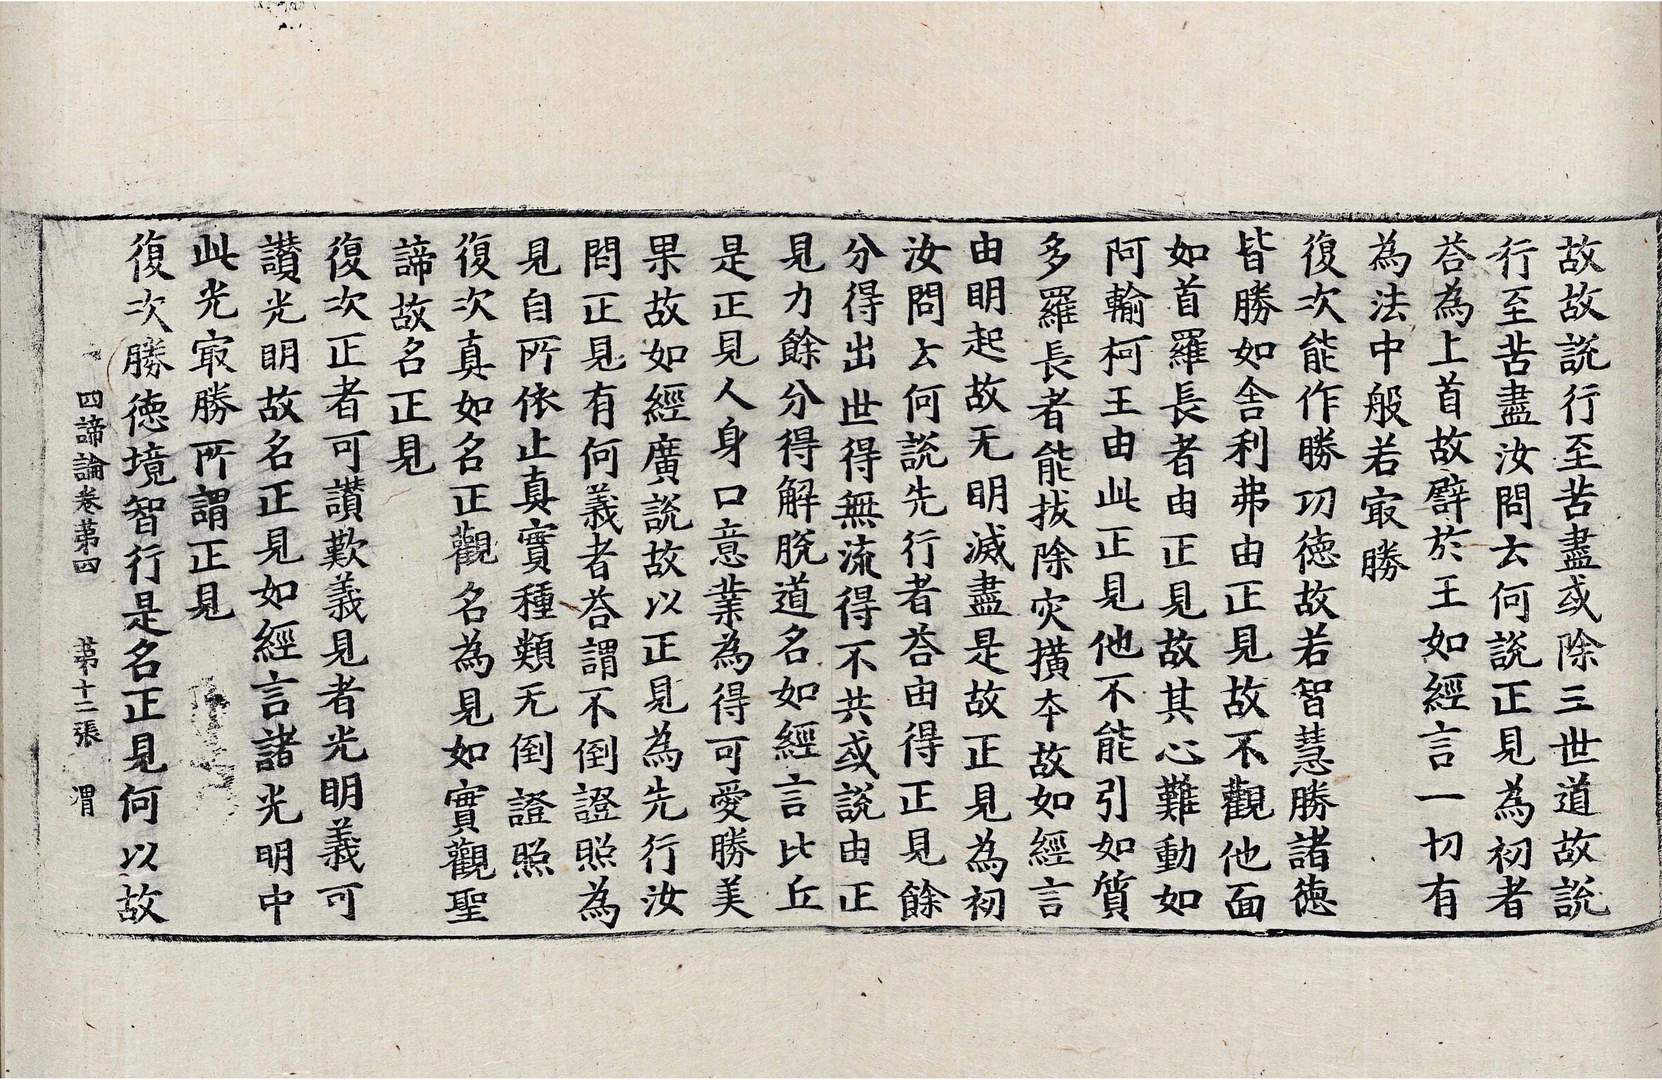 故故説行至苦盡或除三世道故説
行至苦盡汝問云何説正見為初者
荅為上首故譬於王如經言一切有
為法中般若㝡勝
復次能作勝㓛徳故若智慧勝諸徳
皆勝如舎利弗由正見故不觀他面
如首羅長者由正見故其心難動如
阿輸柯王由此正見他不能引如質
多羅長者能拔除灾撗夲故如經言
由明起故无明滅盡是故正見為初
汝問云何説先行者荅由得正見餘
分得出世得無流得不共或説由正
見力餘分得解脱道名如經言比丘
是正見人身口意業為得可愛勝美
果故如經廣説故以正見為先行汝
問正見有何義者荅謂不倒證照為
見自所依止真實種類无倒證照
復次真如名正觀名為見如實觀聖
諦故名正見
復次正者可讃歎義見者光明義可
讃光明故名正見如經言諸光明中
此光㝡勝所謂正見
復次勝徳境智行是名正見何以故
四諦論卷苐四　苐十二張　渭